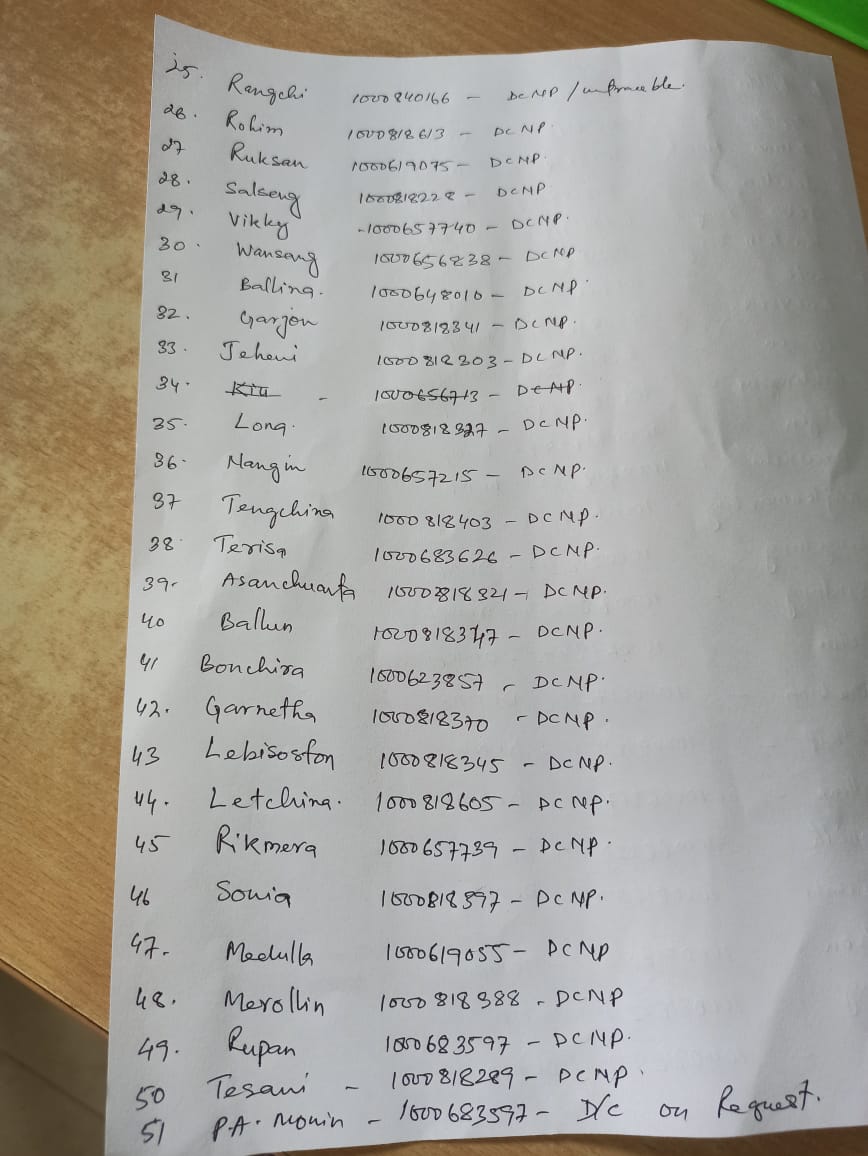 25. Rangchi 1000840166 - DCNP / untraceable.
26. Rohim 1000818613 - DCNP.
27 Ruksan 1000619075 - DCNP.
28. Salseng 1000818228 - DCNP
29. Vikky -1000657740 - DCNP.
30. Wansang 1000656838 - DCNP
31 Balling. 1000648010 - DCNP
32. Garjon 1000818341 - DCNP.
33. Jeheni 1000818303 - DCNP.
34. Kiu - 1000656713 - DCNP.
35. Long. 1000818327 - DCNP.
36. Nangin 1000657215 - DCNP.
37 Tengchina 1000818403 - DCNP.
38 Terisa 1000683626 - DCNP.
39. 1000818321 - DCNP.
40 Ballun 1000818347 - DCNP.
41 Bonchira 1000623857 - DCNP.
42. Garnetha 1000818370 - DCNP.
43 Lebisosfon 1000818345 - DCNP.
44. Letchina. 1000818605 - DCNP.
45 Rikmera 1000657739 - DCNP.
46 Sonia 1000818397 - DCNP.
47. Medulla 1000619055 - DCNP
48. Merollin 1000818388 - DCNP
49. Rupan 1000683597 - DCNP.
50 Tesani - 1000818289 - DCNP.
51 P.A. Monin - 1000683597 - D/C on Request.